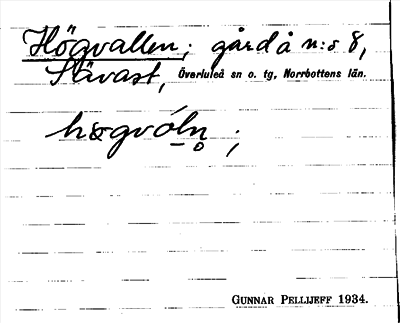 Högvallen; gård å n:o 8,
Sävast, Överluleå sn o. tg, Norrbottens län.
högvóln̥ ;
GUNNAR PELLIJEFF 1934.